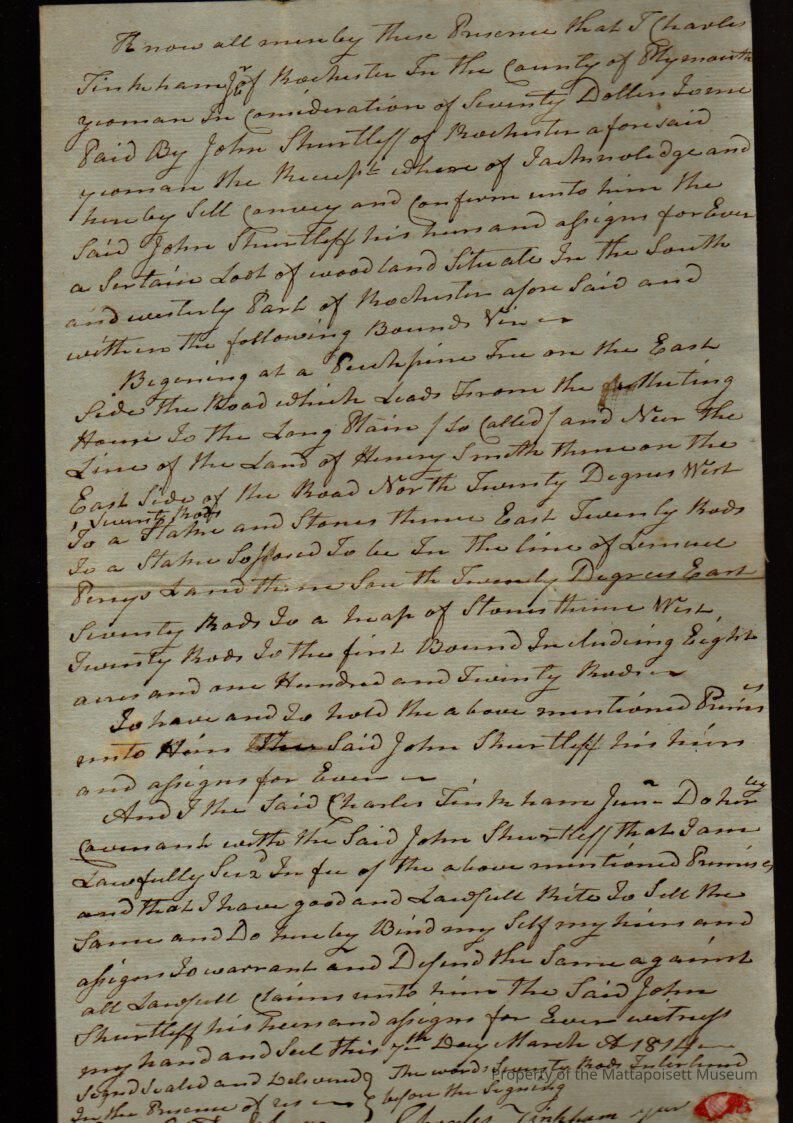 Know all men by these Presence that I Charles
Tinkham Jr of Rochester In the County of Plymouth
yeoman In Consideration of Seventy Dollers To me
Paid By John Shurtleff of Rochester afore said
yeoman the Receipt where of I acknowledge and
here by Sell Convey and Confirm unto him the
Said John Shurtleff his heirs and assigns for Ever
a Sertain Loot of wood land Situate In the South
and westerly Part of Rochester afore Said and
with in the following Bounds
Begening at a Pitchpine Tree on the East
Side the Road which Leads From the Meeting
House To the Long Plain / So Called / and Near the
Line of the Land of Henery Smith thence on the
East Side of the Road North Twenty Degres West
Seventy Rods
To a Stake and Stones thence East Twenty Rods
To a Stake Soposed To be In the line of Lemuel
Perrys Land thence South Twenty Degrees East
Seventy Rods To a heap of Stones thence West
Twenty Rods To the first Bound Including Eight
acres and one Hundred and Twenty Rods
To have and To hold the above mentioned Premises
unto Him the Said John Shurtleff his heirs
and assigns for Ever
And I the Said Charles Tinkham Junr Do hereby
Covenant with the Said John Shurtleff that I am
Lawfully Seizd In fee of the above mentioned Premises
and that I have good and Lawfull Rite To Sell the
Same and Do here by Bind my Self my heirs and
assigns To warrant and Defend the Same against
all Lawfull Claims unto him the Said John
Shurtleff his heirs and assigns for Ever witness
my hand and Seel this 7th Day March A 1814
Signd Sealed and Delivered
In the Presence of us
The words Seventy Rods Interlined
before the Signing
Charles Tinkham Junr
Property of the Mattapoisett Museum